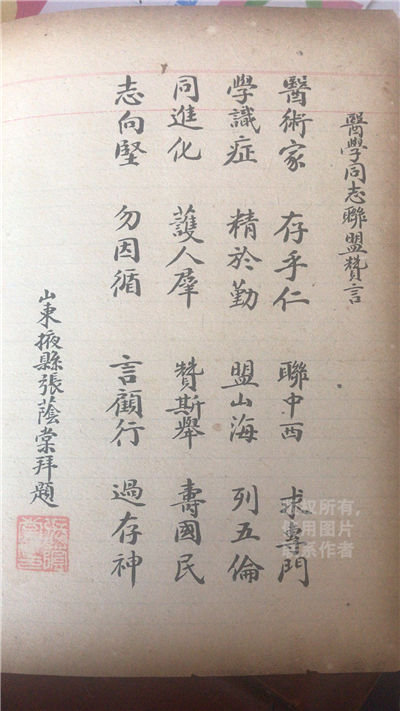 醫學同志聯盟贊言
醫術家 存乎仁 聯中西 求專門
學識症 精於勤 盟山海 列五倫
同進化 護人羣 贊斯舉 壽國民
志向堅 勿因循 言顧行 過存神
山東掖縣張蔭棠拜題
版权所有,
使用图片
请联系作者